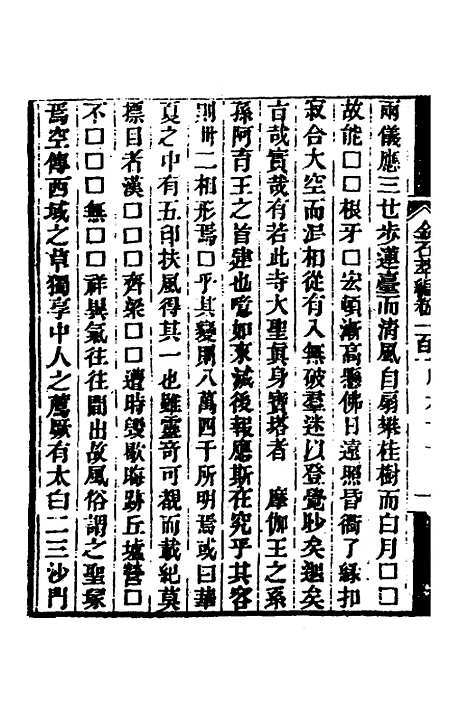 金石萃編卷一百一
兩儀應三世步蓮臺而清風自扇攀桂樹而白月□□
故能□□根牙□宏頓漸高懸佛日遠照昏衢了緣扣
寂合大空而混相從有入無破羣迷以登覺眇矣邈矣
古哉實哉有若此寺大聖眞身寶塔者 摩伽王之系
孫阿育王之首建也噫如來滅後報應斯在究乎其容
則卅二相形焉□乎其變周八萬四千所明焉或曰華
夏之中有五印扶風得其一也雖靈奇可觀而載紀莫
標目者漢□□□齊梁□□遭時毀歇晦跡丘墟瑩□
不□□□無□□祥異氣往往間出故風俗謂之聖冢
焉空傳西域之草獨享中人之薦厥有太白二三沙門